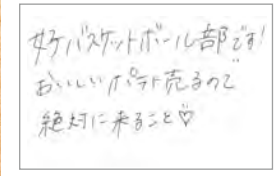 女子バスケットボール部です!
おいしいポテト売るので
絶対に来ること♡